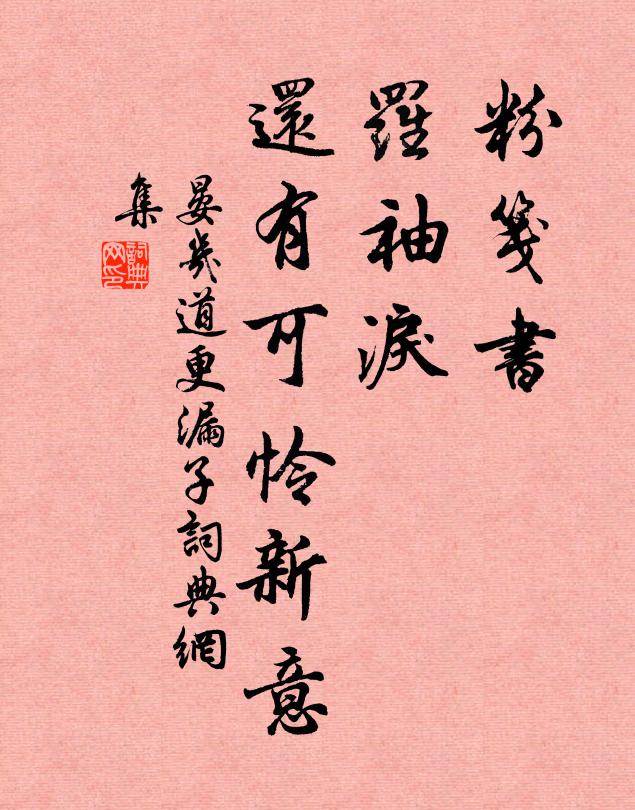 粉箋書
羅袖淚
還有可怜新意
晏幾道更漏子詞典網
集
詞典網印